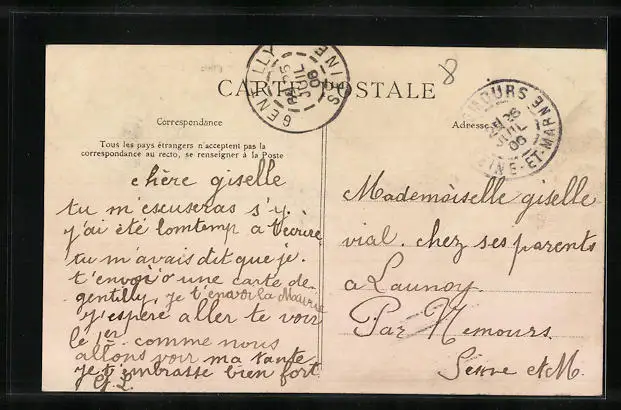 CARTE POSTALE
Correspondance
Tous les pays étrangers n'acceptent pas la
correspondance au recto, se renseigner à la Poste
chère giselle
tu m'escuseras s'y
j'ai été lomtemp a t'ecrire
tu m'avais dit que je
t'envoi une carte de
gentilly, je t'envoi la Mairie
j'espère aller te voir
le 1er comme nous
allons voir ma tante
je t'embrasse bien fort
Adresse
Mademoiselle giselle
vial. chez ses parents
a Launoy
Par Nemours.
Seine et M.
GENTILLY
SEINE
25
JUIL
06
NEMOURS
26
JUIL
06
SEINE-ET-MARNE
8